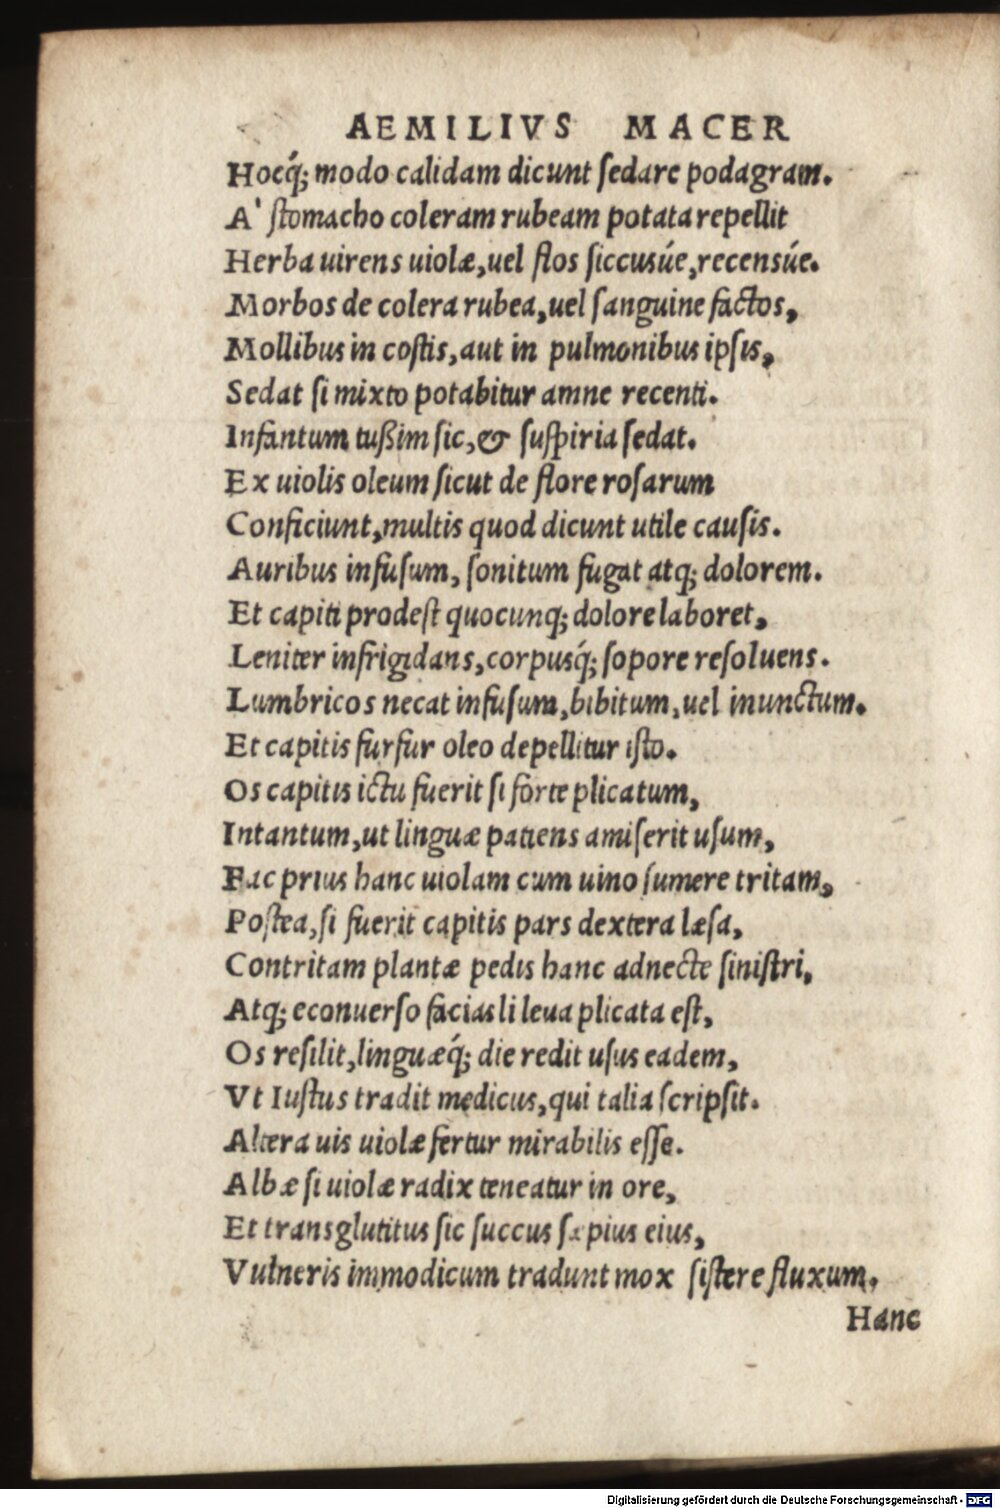 AEMILIVS MACER
Hocq́; modo calidam dicunt ſedare podagram.
A' ſtomacho coleram rubeam potata repellit
Herba uirens uiolæ, uel flos ſiccusúe, recensúe.
Morbos de colera rubea, uel ſanguine factos,
Mollibus in coſtis, aut in pulmonibus ipſis,
Sedat ſi mixto potabitur amne recenti.
Infantum tußim ſic, & ſuſpiria ſedat.
Ex uiolis oleum ſicut de flore roſarum
Conficiunt, multis quod dicunt utile cauſis.
Auribus infuſum, ſonitum fugat atq; dolorem.
Et capiti prodeſt quocunq; dolore laboret,
Leniter infrigidans, corpusq́; ſopore reſoluens.
Lumbricos necat infuſum, bibitum, uel inunctum.
Et capitis furfur oleo depellitur iſto.
Os capitis ictu fuerit ſi forte plicatum,
Intantum, ut linguæ patiens amiſerit uſum,
Fac prius hanc uiolam cum uino ſumere tritam,
Poſtea, ſi fuerit capitis pars dextera læſa,
Contritam plantæ pedis hanc adnecte ſiniſtri,
Atq; econuerſo facias ſi leua plicata eſt,
Os reſilit, linguæq́; die redit uſus eadem,
Vt Iuſtus tradit medicus, qui talia ſcripſit.
Altera uis uiolæ fertur mirabilis eſſe.
Albæ ſi uiolæ radix teneatur in ore,
Et transglutitus ſic ſuccus ſæpius eius,
Vulneris immodicum tradunt mox ſiſtere fluxum.
Hanc
Digitalisierung gefördert durch die Deutsche Forschungsgemeinschaft - DFG